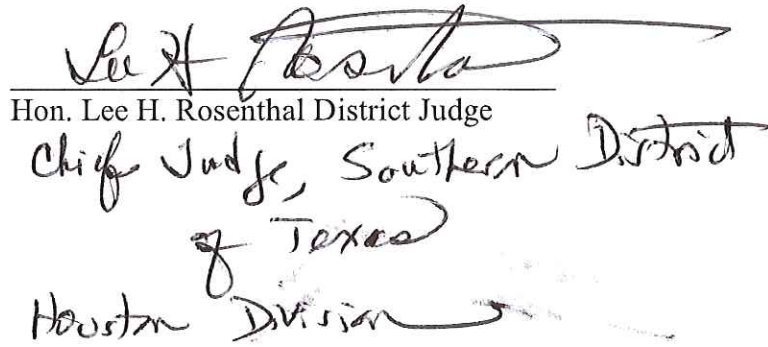 Lee H Rosenthal
Hon. Lee H. Rosenthal District Judge
Chief Judge, Southern District
of Texas
Houston Division